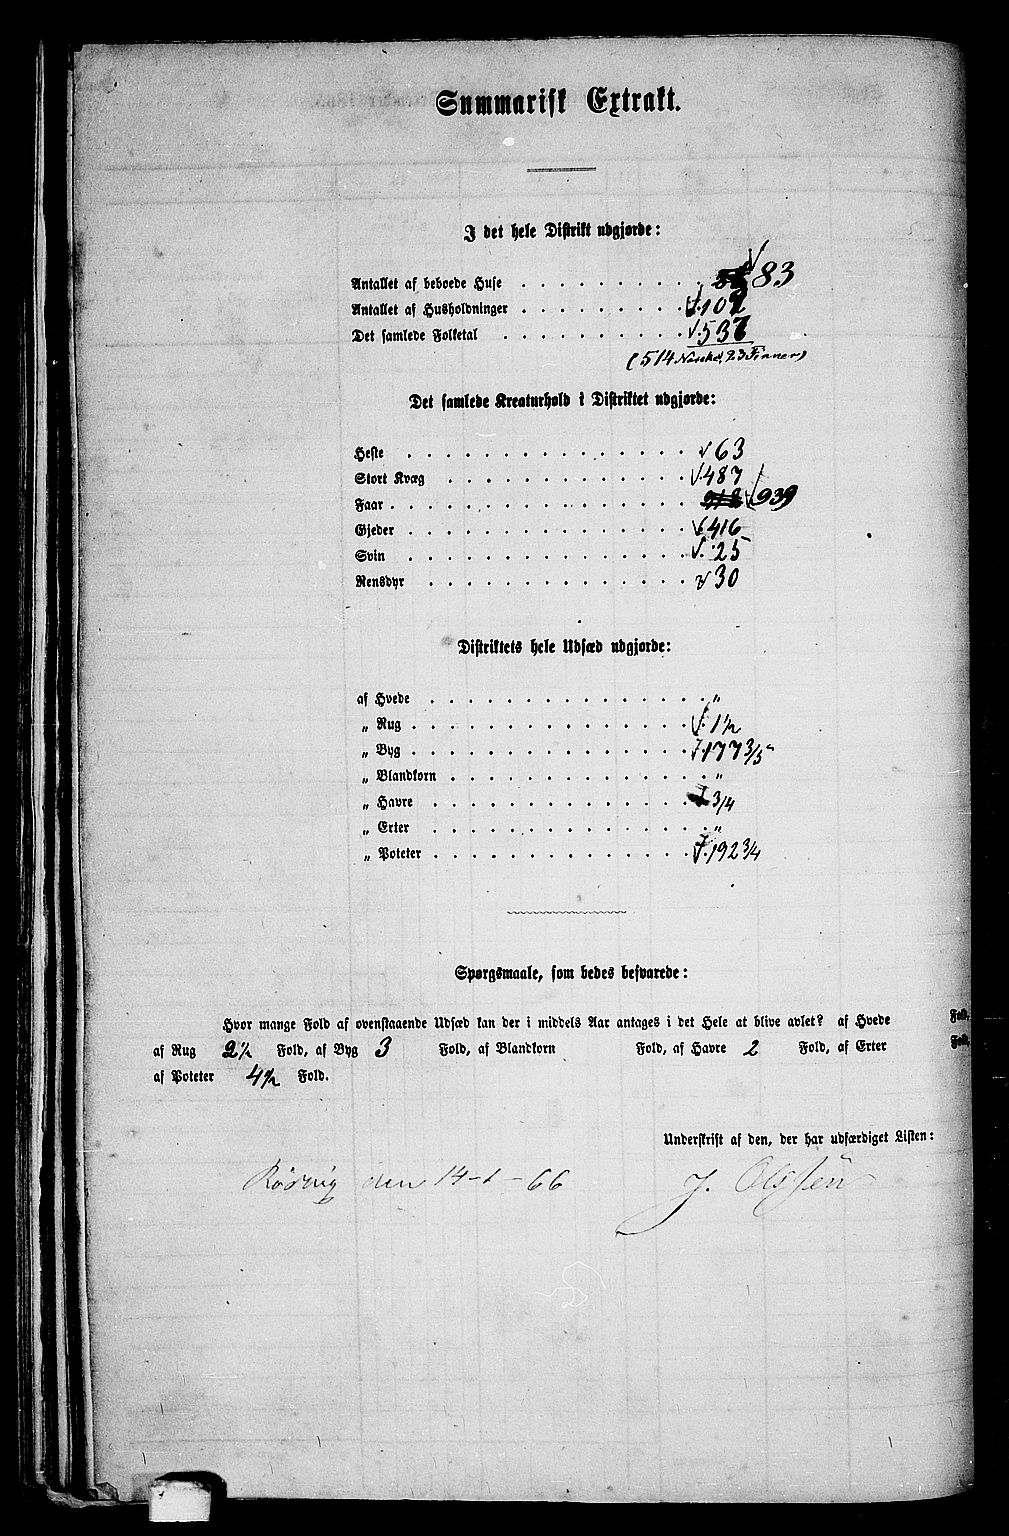 Summarisk Extrakt.
I det hele Distrikt udgjorde:
Antallet af beboede Huse . . . . . . . . . . 83
Antallet af Husholdninger . . . . . . . . . 102
Det samlede Folketal . . . . . . . . . . 537
(514 Norske, 23 Finner)
Det samlede Kreaturhold i Distriktet udgjorde:
Heste . . . . . . . . . . . . . . . 63
Stort Kvæg . . . . . . . . . . . . . 487
Faar . . . . . . . . . . . . . . . . 918 939
Gjeder . . . . . . . . . . . . . . . 416
Svin . . . . . . . . . . . . . . . 25
Rensdyr . . . . . . . . . . . . . . 30
Distriktets hele Udsæd udgjorde:
af Hvede . . . . . . . . . . . . . . . "
„ Rug . . . . . . . . . . . . . . . 1 1/2
„ Byg . . . . . . . . . . . . . . . 177 3/5
„ Blandkorn . . . . . . . . . . . . . "
„ Havre . . . . . . . . . . . . . . 3/4
„ Erter . . . . . . . . . . . . . . "
„ Poteter . . . . . . . . . . . . . . 192 3/4
Spørgsmaale, som bedes besvarede:
Hvor mange Fold af ovenstaaende Udsæd kan der i middels Aar antages i det Hele at blive avlet? af Hvede Fold,
af Rug 2 1/2 Fold, af Byg 3 Fold, af Blandkorn Fold, af Havre 2 Fold, af Erter Fold,
af Poteter 4 1/2 Fold.
Underskrift af den, der har udfærdiget Listen:
den 14-1-66 J. Olssen